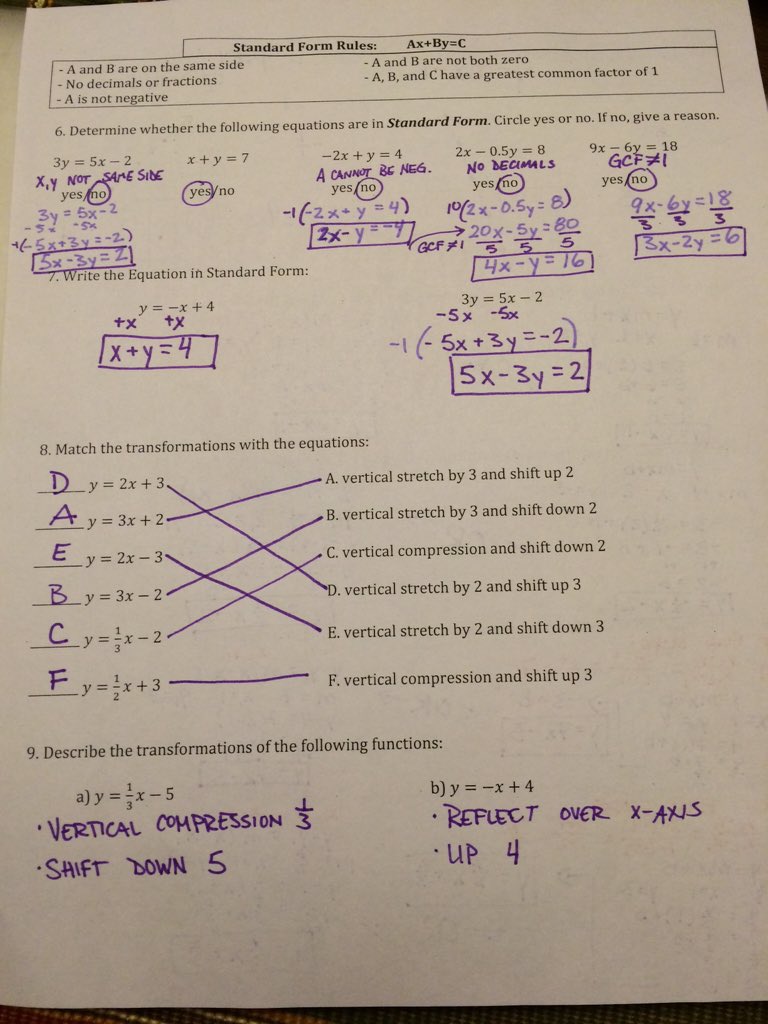 Standard Form Rules: Ax+By=C
- A and B are on the same side
- No decimals or fractions
- A is not negative
- A and B are not both zero
- A, B, and C have a greatest common factor of 1
6. Determine whether the following equations are in Standard Form. Circle yes or no. If no, give a reason.
3y = 5x − 2
X,Y NOT SAME SIDE
yes/no
3y = 5x-2
-5x -5x
-1(-5x+3y=-2)
5x-3y=2
x + y = 7
yes/no
−2x + y = 4
A CANNOT BE NEG.
yes/no
-1(-2x+y=4)
2x-y=-4
2x − 0.5y = 8
NO DECIMALS
yes/no
10(2x-0.5y=8)
GCF≠1 20x-5y=80
5 5 5
4x-y=16
9x − 6y = 18
GCF≠1
yes/no
9x-6y=18
3 3 3
3x-2y=6
7. Write the Equation in Standard Form:
y = −x + 4
+x +x
x+y=4
3y = 5x − 2
-5x -5x
-1(-5x+3y=-2)
5x-3y=2
8. Match the transformations with the equations:
D y = 2x + 3
A y = 3x + 2
E y = 2x − 3
B y = 3x − 2
C y = 1/3 x − 2
F y = 1/2 x + 3
A. vertical stretch by 3 and shift up 2
B. vertical stretch by 3 and shift down 2
C. vertical compression and shift down 2
D. vertical stretch by 2 and shift up 3
E. vertical stretch by 2 and shift down 3
F. vertical compression and shift up 3
9. Describe the transformations of the following functions:
a) y = 1/3 x − 5
· VERTICAL COMPRESSION 1/3
· SHIFT DOWN 5
b) y = −x + 4
· REFLECT OVER X-AXIS
· UP 4